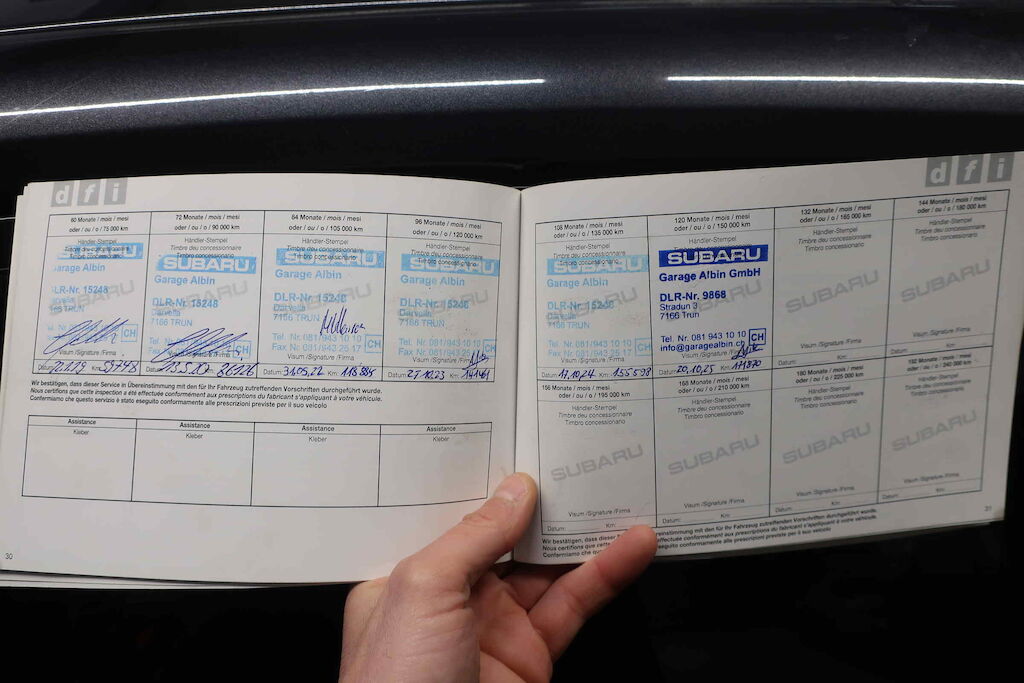 dfi
60 Monate / mois / mesi
oder / ou / o / 75 000 km
Händler-Stempel
Timbre deu concessionnaire
Timbro concessionario
SUBARU
Garage Albin
DLR-Nr. 15248
Visum /Signature /Firma
Datum: Km:
72 Monate / mois / mesi
oder / ou / o / 90 000 km
Händler-Stempel
Timbre deu concessionnaire
Timbro concessionario
SUBARU
Garage Albin
DLR-Nr. 15248
Darvella
7166 TRUN
CH
Visum /Signature /Firma
Datum: Km:
84 Monate / mois / mesi
oder / ou / o / 105 000 km
Händler-Stempel
Timbre deu concessionnaire
Timbro concessionario
SUBARU
Garage Albin
DLR-Nr. 15248
Darvella
7166 TRUN
Tel. Nr. 081/943 10 10
Fax Nr. 081/943 25 17
CH
Visum /Signature /Firma
Datum: 31.05.22 Km:
96 Monate / mois / mesi
oder / ou / o / 120 000 km
Händler-Stempel
Timbre deu concessionnaire
Timbro concessionario
SUBARU
Garage Albin
DLR-Nr. 15248
Darvella
7166 TRUN
Tel. Nr. 081/943 10 10
Fax Nr. 081/943 25 17
CH
Visum /Signature /Firma
Datum: 27.10.23 Km: 141461
Wir bestätigen, dass dieser Service in Übereinstimmung mit den für Ihr Fahrzeug zutreffenden Vorschriften durchgeführt wurde.
Nous certifions que cette inspection a été effectuée conformément aux prescriptions du fabricant s'appliquant à votre véhicule.
Confermiamo che questo servizio è stato eseguito conformamente alle prescrizioni previste per il suo veicolo
Assistance Assistance Assistance Assistance
Kleber Kleber Kleber Kleber
30
dfi
108 Monate / mois / mesi
oder / ou / o / 135 000 km
Händler-Stempel
Timbre deu concessionnaire
Timbro concessionario
SUBARU
Garage Albin
DLR-Nr. 15248
Darvella
7166 TRUN
Tel. Nr. 081/943 10 10
Fax Nr. 081/943 25 17
CH
Visum /Signature /Firma
Datum: 17.10.24 Km: 155598
120 Monate / mois / mesi
oder / ou / o / 150 000 km
Händler-Stempel
SUBARU
Garage Albin GmbH
DLR-Nr. 9868
Stradun 3
7166 Trun
Tel. Nr. 081 943 10 10
info@garagealbin.ch
CH
Datum: 20.10.25 Km: 171870
132 Monate / mois / mesi
oder / ou / o / 165 000 km
Händler-Stempel
Timbre deu concessionnaire
Timbro concessionario
SUBARU
Visum /Signature /Firma
Datum: Km:
144 Monate / mois / mesi
oder / ou / o / 180 000 km
Händler-Stempel
Timbre deu concessionnaire
Timbro concessionario
SUBARU
Visum /Signature /Firma
Datum: Km:
156 Monate / mois / mesi
oder / ou / o / 195 000 km
Händler-Stempel
Timbre deu concessionnaire
Timbro concessionario
SUBARU
Visum /Signature /Firma
Datum: Km:
168 Monate / mois / mesi
oder / ou / o / 210 000 km
Händler-Stempel
Timbre deu concessionnaire
Timbro concessionario
SUBARU
Visum /Signature /Firma
Datum: Km:
180 Monate / mois / mesi
oder / ou / o / 225 000 km
Händler-Stempel
Timbre deu concessionnaire
Timbro concessionario
SUBARU
Visum /Signature /Firma
Datum: Km:
192 Monate / mois / mesi
oder / ou / o / 240 000 km
Händler-Stempel
Timbre deu concessionnaire
Timbro concessionario
SUBARU
Visum /Signature /Firma
Datum: Km:
Wir bestätigen, dass dieser Übereinstimmung mit den für Ihr Fahrzeug zutreffenden Vorschriften durchgeführt wurde.
Nous certifions que cette effectuée conformément aux prescriptions du fabricant s'appliquant à votre véhicule.
Confermiamo che questo seguito conformamente alle prescrizioni previste per il suo veicolo
31